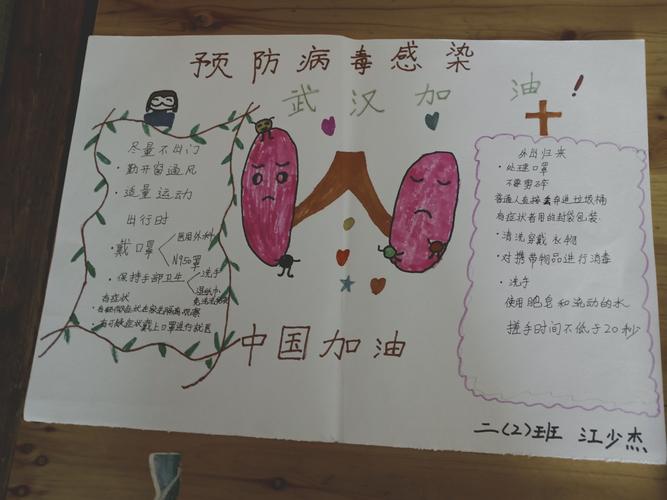 预防病毒感染
武汉加油！
尽量不出门
·勤开窗通风
·适量运动
出行时
·戴口罩
医用外科
N95罩
·保持手部卫生
洗手
湿纸巾
免洗洗手液
有症状
·有轻微症状在家先隔离观察
·有可疑症状戴上口罩进行就医
中国加油
外出归来
·处理口罩
不要剪碎
普通人直接丢弃进垃圾桶
有症状者用的封袋包装
·清洗穿戴衣物
·对携带物品进行消毒
·洗手
使用肥皂和流动的水
搓手时间不低于20秒
二(2)班 江少杰